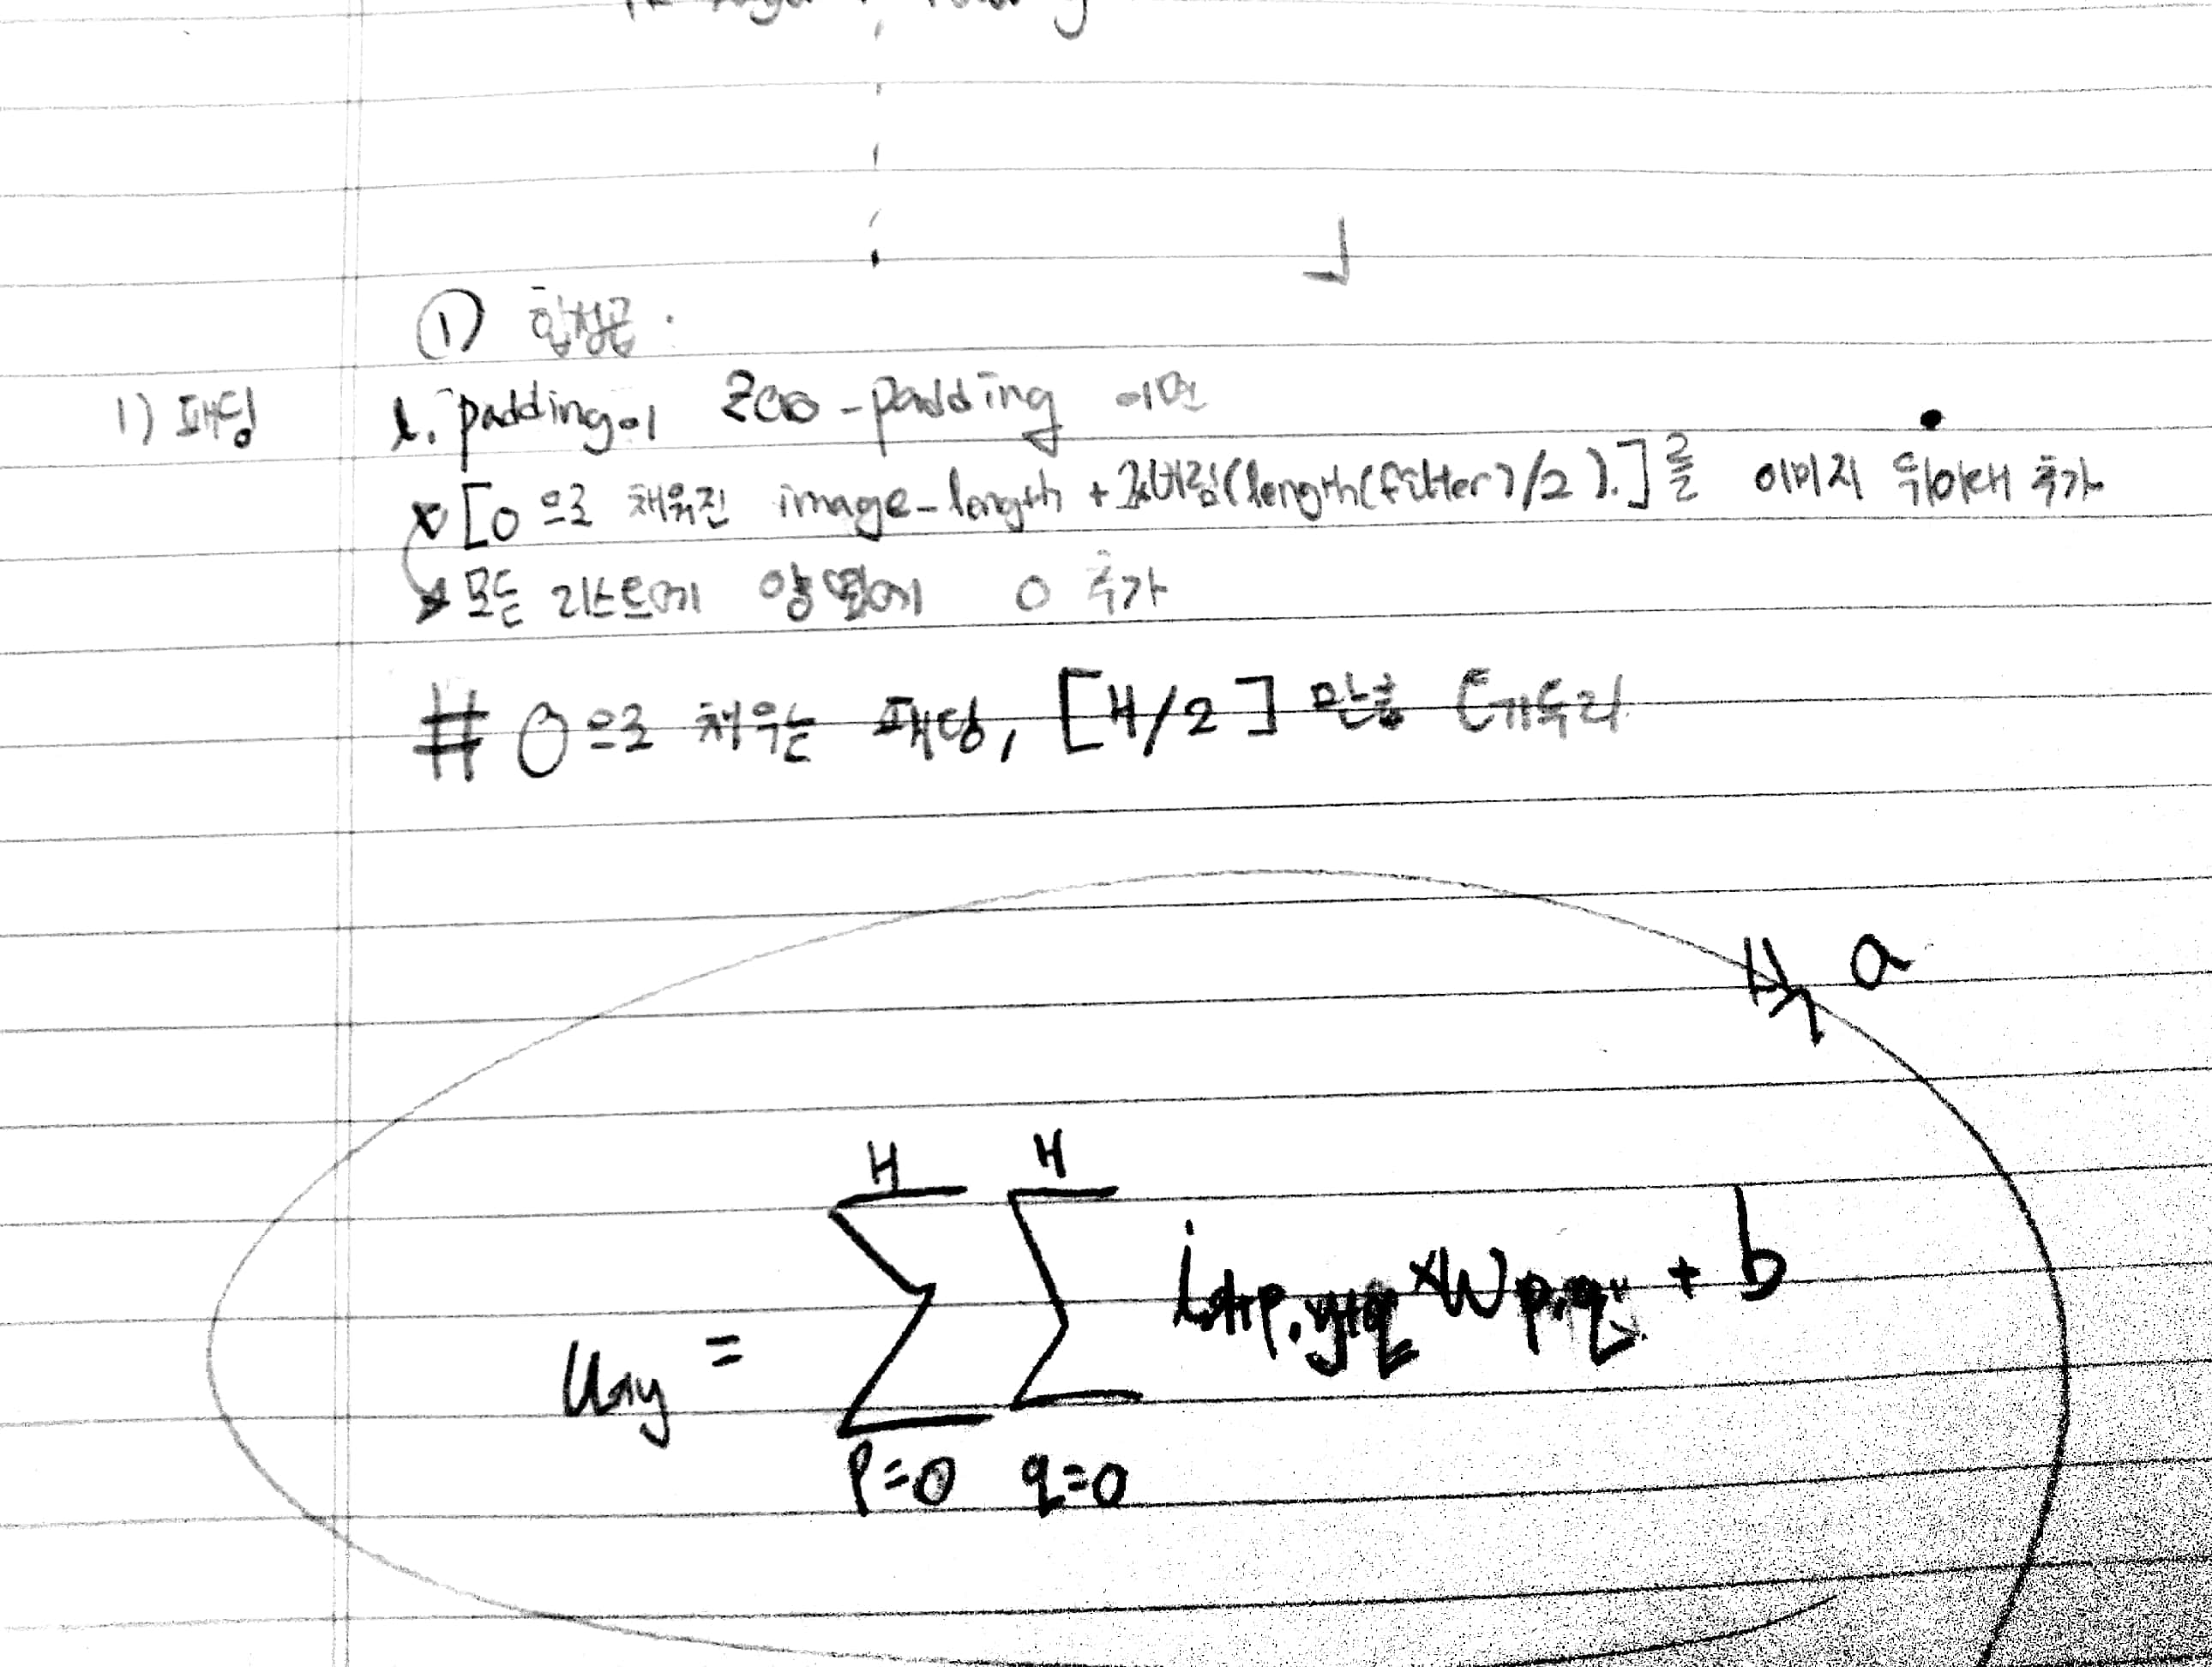 ① 합성곱.
1) 패딩
1. padding이 zero-padding 이면
[0 으로 채워진 image-length + 버림(length(filter)/2).]를 이미지 위아래 추가
모든 리스트에 양 옆에 0 추가
# 0으로 채우는 패딩, [H/2] 만큼 테두리
a
H H
u_xy = Σ Σ i_x+p,y+q × w_p,q + b
p=0 q=0